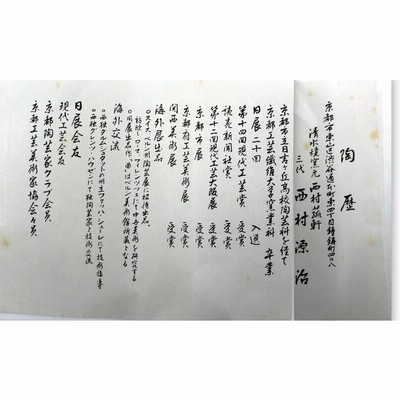 陶歴
京都市東山区渋谷通本町東四丁目鐘鋳町四〇八
清水焼窯元 西村山蹈軒
三代 西村源治
京都市立日吉ヶ丘高校陶芸科を経て
京都工芸繊維大学窯業科 卒業
日展二十回 入選
第十四回現代工芸 受賞
読売新聞社賞 受賞
第十二回現代工芸大阪展 受賞
京都市展 受賞
京都府工芸美術展 受賞
関西美術展 受賞
海外展出品
○スイス、ベルン州陶芸展に招待出品。
○訪欧しローマ、フィレンツェにて中西美術を研究する
○同展出品作「曲」はベルン美術館所蔵となる
海外交流
○西独ダルムシュタットの州立ファッハシューレにて技術指導
○西独グレンツ・ハウゼンにて独陶芸家と技術交流
日展会友
現代工芸会友
京都陶芸家クラブ会員
京都工芸美術家協会々員